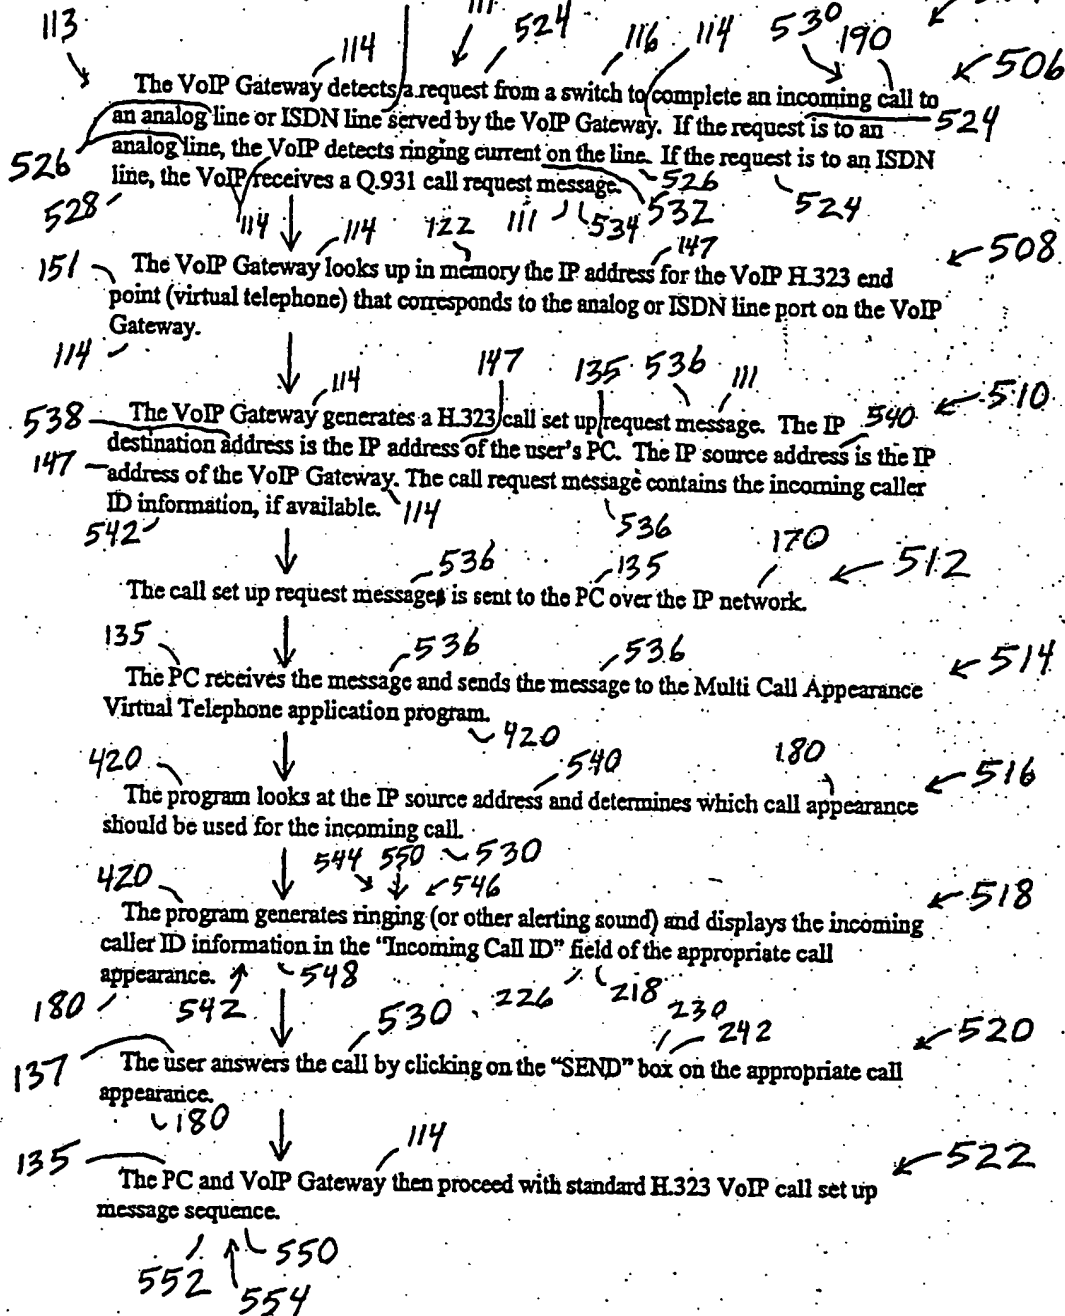 113 111 524 116 114 530 190
114 506
The VoIP Gateway detects a request from a switch to complete an incoming call to
an analog line or ISDN line served by the VoIP Gateway. If the request is to an 524
analog line, the VoIP detects ringing current on the line. If the request is to an ISDN
526 line, the VoIP receives a Q.931 call request message. 526
528 114 114 122 111 534 532 524
147 508
151 The VoIP Gateway looks up in memory the IP address for the VoIP H.323 end
point (virtual telephone) that corresponds to the analog or ISDN line port on the VoIP
Gateway.
114 114 147 135 536 111
538 The VoIP Gateway generates a H.323 call set up request message. The IP 540 510
destination address is the IP address of the user's PC. The IP source address is the IP
147 address of the VoIP Gateway. The call request message contains the incoming caller
ID information, if available. 114
542 536
536 135 170 512
The call set up request messages is sent to the PC over the IP network.
135 536 536 514
The PC receives the message and sends the message to the Multi Call Appearance
Virtual Telephone application program.
420
420 540 180 516
The program looks at the IP source address and determines which call appearance
should be used for the incoming call.
544 550 530
420 546 518
The program generates ringing (or other alerting sound) and displays the incoming
caller ID information in the "Incoming Call ID" field of the appropriate call
appearance. 548
180 542 530 226 218 230
242 520
137 The user answers the call by clicking on the "SEND" box on the appropriate call
appearance.
180
135 114 522
The PC and VoIP Gateway then proceed with standard H.323 VoIP call set up
message sequence.
550
552 554